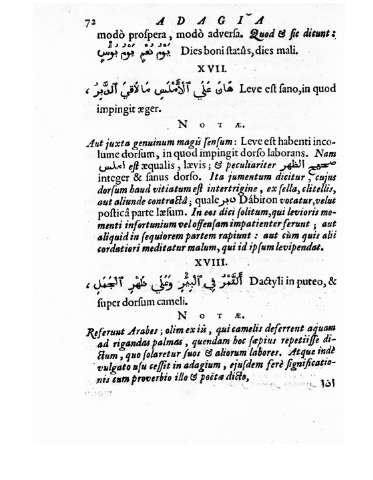 72 ADAGIA
modò prospera, modò adversa. Quod & sic dicunt:
يَوْمُ نُعْمٍ يَوْمُ بُوسٍ Dies boni statûs, dies mali.
XVII.
هَانَ عَلَى ٱلْأَمْلَسِ مَا لَاقَى ٱلدَّبِرُ، Leve est sano, in quod
impingit æger.
NOTÆ.
Aut juxta genuinum magis sensum: Leve est habenti inco-
lume dorsum, in quod impingit dorso laborans. Nam
املس est æqualis, lævis; & peculiariter صحيح الظهر
integer & sanus dorso. Ita jumentum dicitur, cujus
dorsum haud vitiatum est intertrigine, ex sella, clitellis,
aut aliunde contractâ; quale دبر Dâbiron vocatur, velut
posticâ parte læsum. In eos dici solitum, qui levioris mo-
menti infortunium vel offensam impatienter ferunt; aut
aliquid in sequiorem partem rapiunt: aut cùm quis alii
cordatiori meditatur malum, qui id ipsum levipendat.
XVIII.
أَلتَّمْرُ فِي ٱلْبِئْرِ وَعَلَى ظَهْرِ ٱلْجَمَلِ، Dactyli in puteo, &
super dorsum cameli.
NOTÆ.
Referunt Arabes; olim ex iis, qui camelis deferrent aquam
ad rigandas palmas, quendam hoc sæpius repetiisse di-
ctum, quo solaretur suos & aliorum labores. Atque indè
vulgato usu cessit in adagium, ejusdem ferè significatio-
nis cum proverbio illo & poëtæ dicto,
اذا